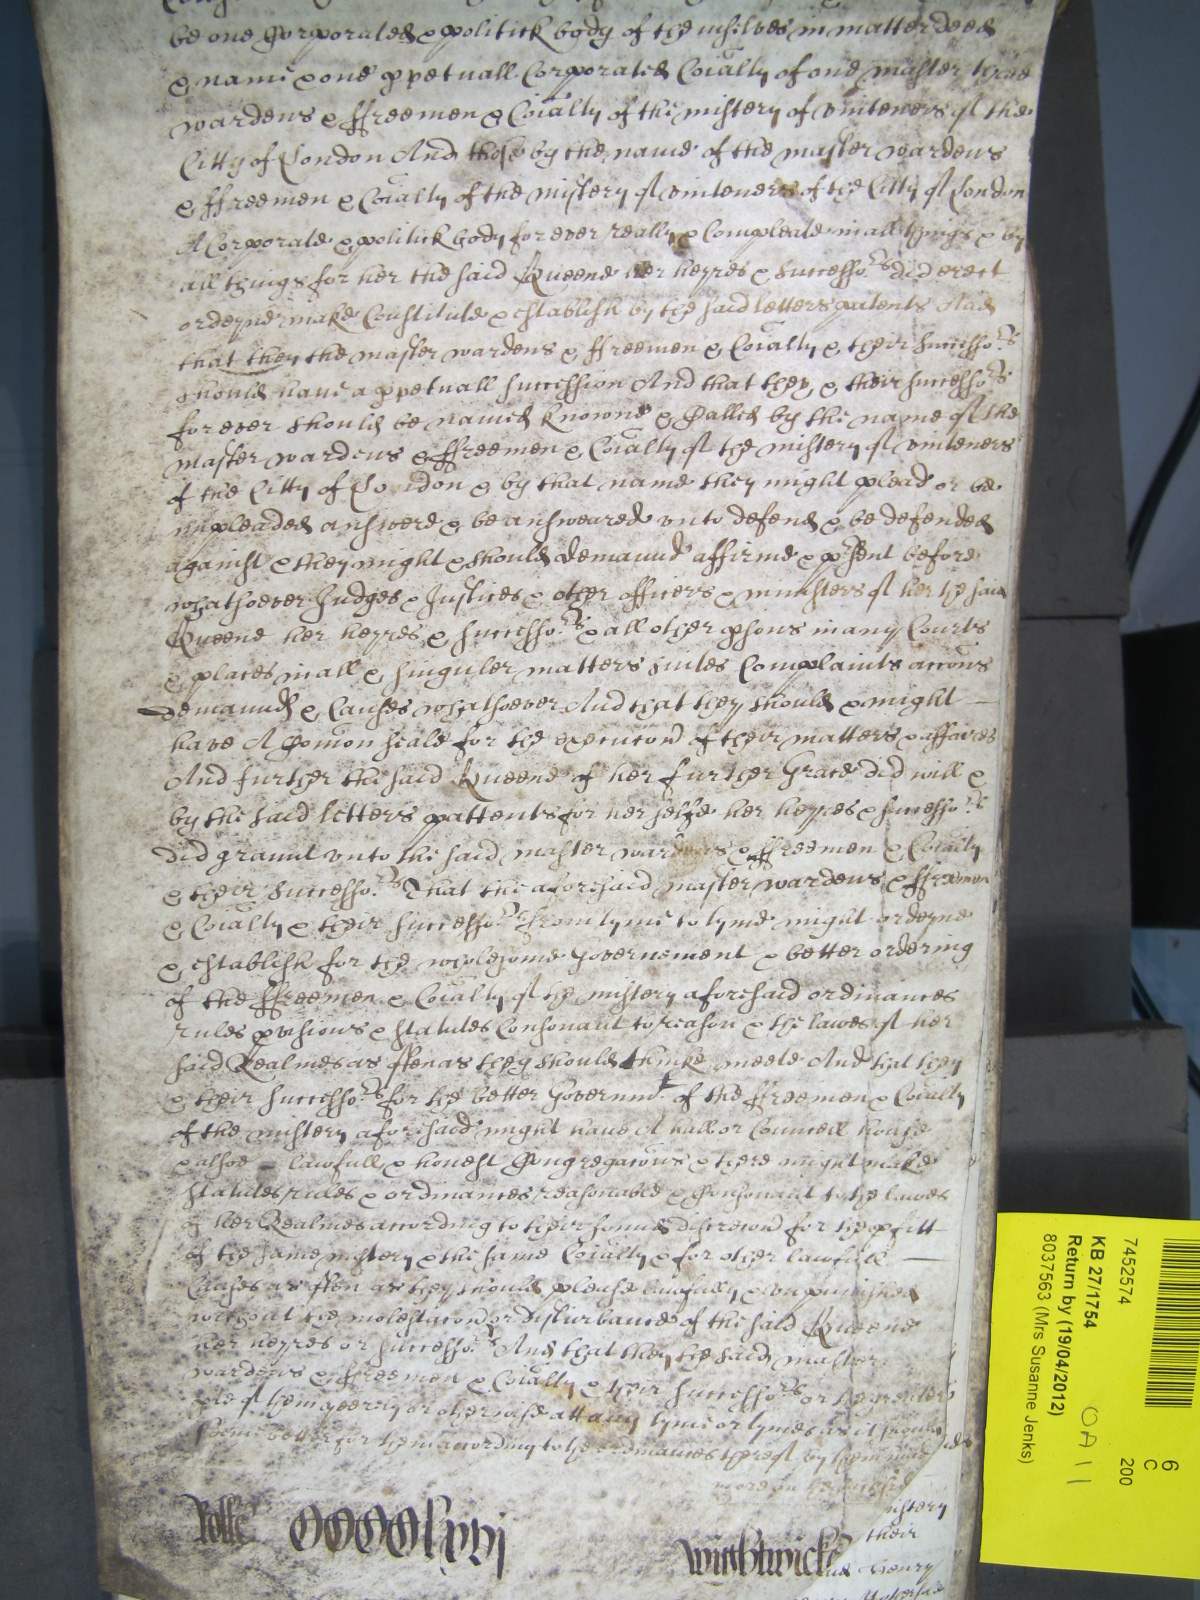 be one Corporated & politick body of themselves in matter deed
& name & one ppetuall Corporated Coialty of one master three
wardens & ffreemen & Coialty of the mistery of vinteners of the
Citty of London And those by the name of the master wardens
& ffreemen & Coialty of the mistery of vinteners of the Citty of London
A Corporate & politick body for ever really & Compleate in all things & by
all things for her the said Queene her heyres & Successors did erect
ordeyne make Constitute & establish by the said letters patents And
that they the master wardens & ffreemen & Coialty & their Successors
should have a ppetuall succession And that they & their successors
for ever should be named knowne & Called by the name of the
master wardens & ffreemen & Coialty of the mistery of vinteners
of the Citty of London & by that name they might plead or be
impleaded answere & be answeared unto defend & be defended
against & they might & should demaund affirme & psent before
whatsoever Judges & Justices & other officers & ministers of her the said
Queene her heyres & Successors & all other psons in any Courts
& places in all & singuler matters suites Complaints accons
demaunds & Causes whatsoever And that they should & might
have A Comon seale for the execucon of their matters & affaires
And further the said Queene of her further Grace did will &
by the said letters pattents for her selfe her heyres & successors
did graunt unto the said master wardens & ffreemen & Coialty
& their Successors That the aforesaid master wardens & ffreemen
& Coialty & their Successors from tyme to tyme might ordeyne
& establish for the wholesome Governement & better ordering
of the ffreemen & Coialty of the mistery aforesaid ordinances
rules pvisions & statutes Consonant to reason & the lawes of her
said Realmes as often as they should thinke meete And that they
& their Successors for the better Governmt of the ffreemen & Coialty
of the mistery aforesaid might have A hall or Councell house
& alsoe lawfull & honest Congregacons & there might make
statutes rules & ordinances reasonable & Consonant to the lawes
of her Realmes according to their sound discrecon for the pfitt
of the same mistery & the same Coialty & for other lawfull
Causes as often as they should please lawfully & unpunished
without the molestacon or disturbance of the said Queene
her heyres or Successors And that they the said master
wardens & ffreemen & Coialty & their Successors or the greater
pte of them yeerely or otherwise att any tyme or tymes as it should
seeme better for them according to the ordinances thereof by them made
mistery
their
Henry
Rolle CCCClxvj
Wightwicke
7452574
KB 27/1754
Return by (19/04/2012)
8037563 (Mrs Susanne Jenks)
OA11
6
C
200